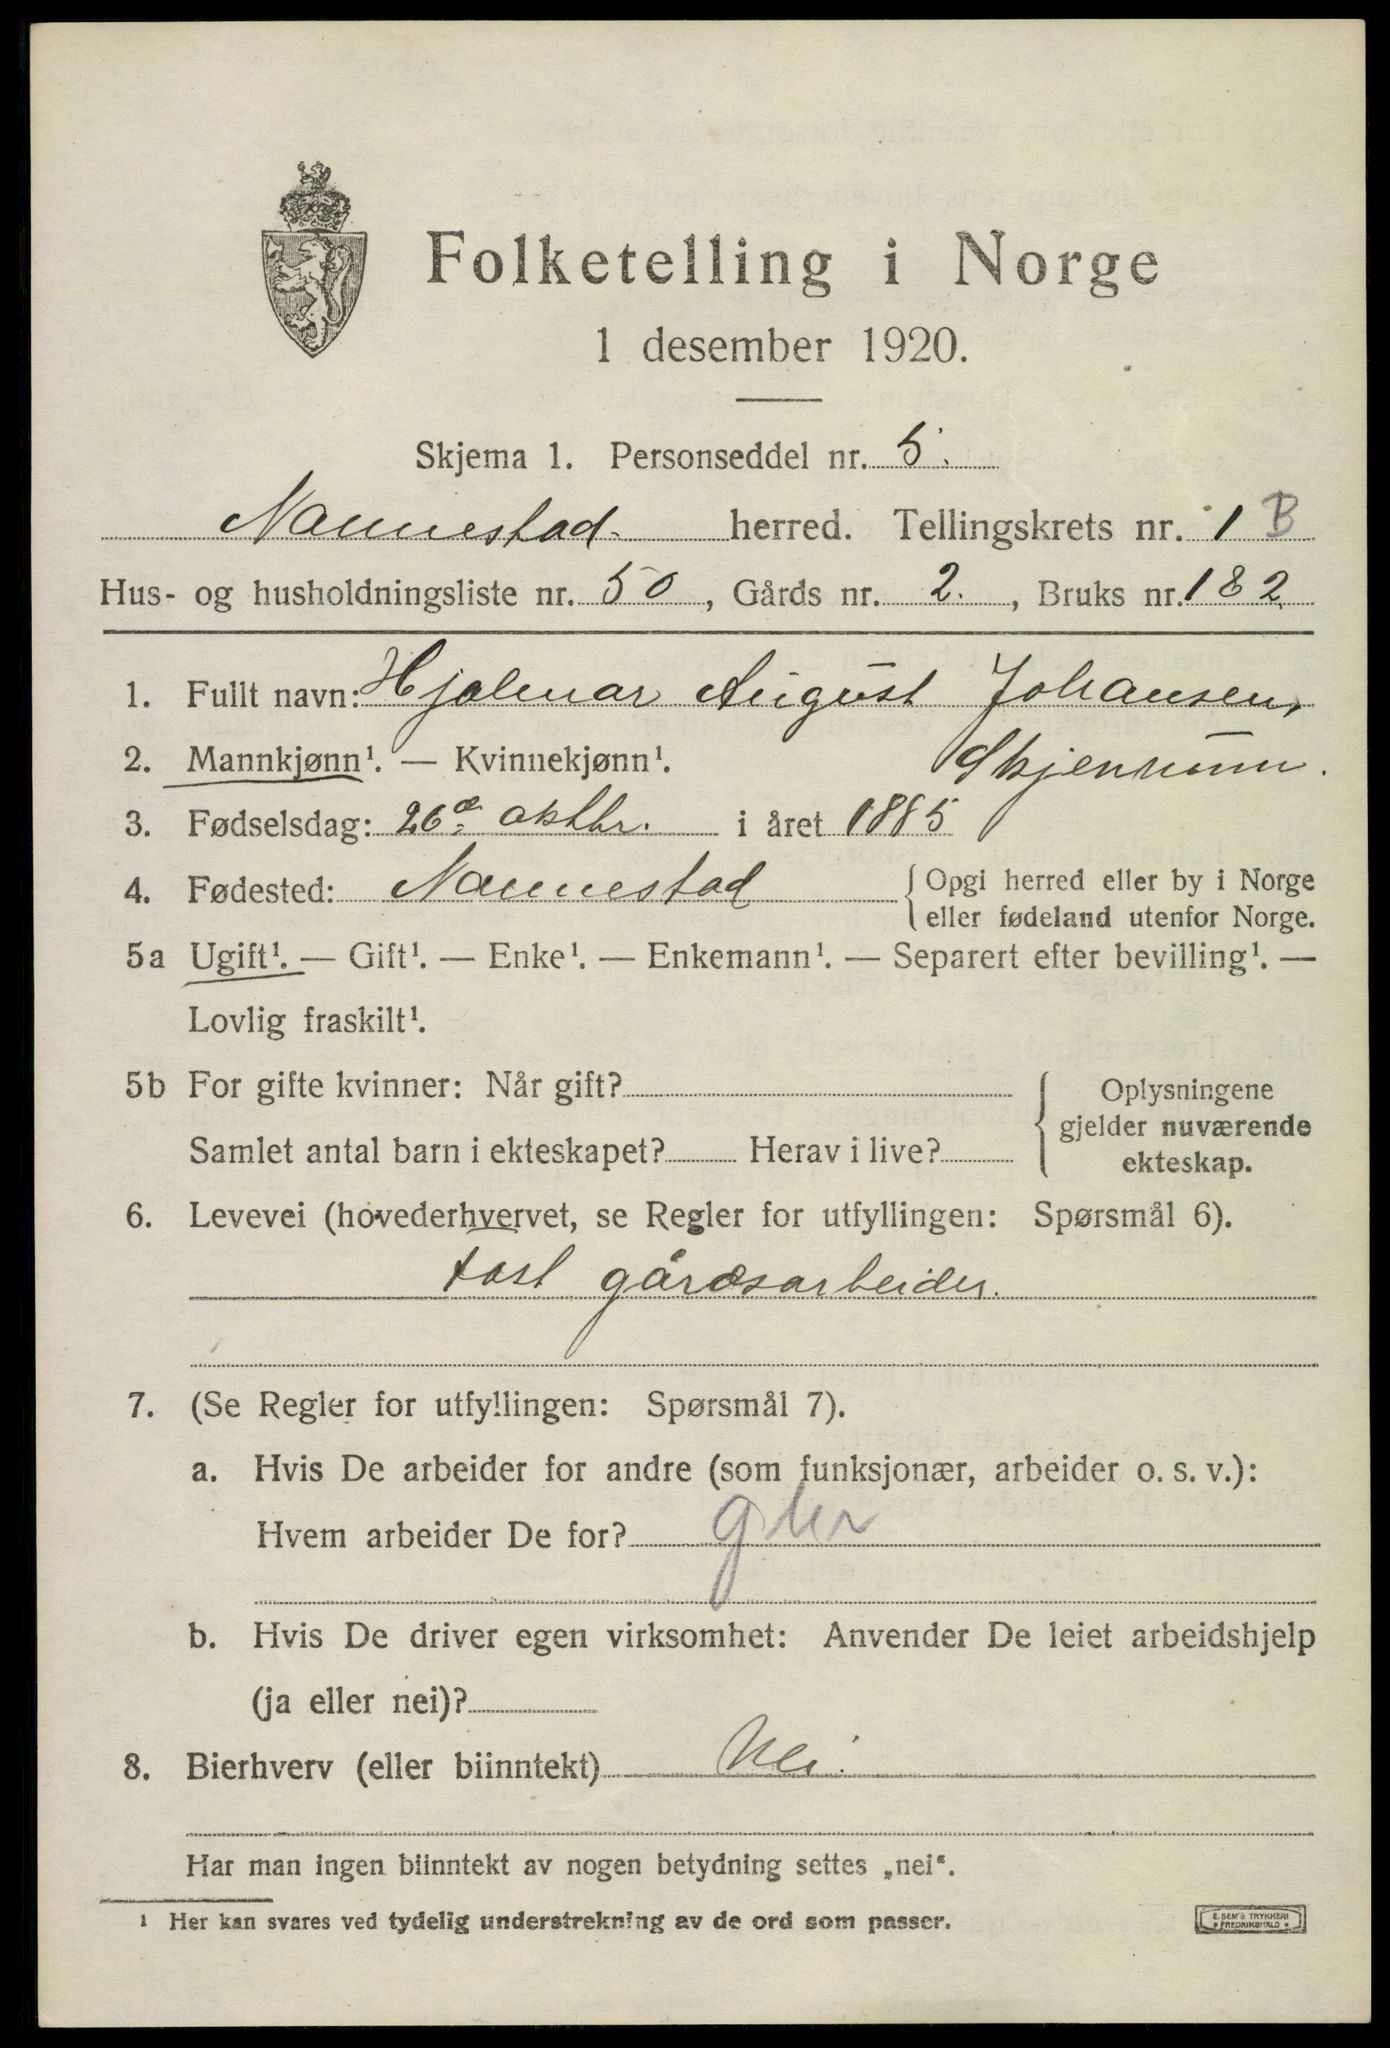 Folketelling i Norge
1 desember 1920.
Skjema 1. Personseddel nr. 5.
Nannestad herred. Tellingskrets nr. 1 B
Hus- og husholdningsliste nr. 50, Gårds nr. 2., Bruks nr. 182.
1. Fullt navn: Hjalmar August Johansen,
2. Mannkjønn¹. — Kvinnekjønn¹. Skjennum.
3. Fødselsdag: 26de oktbr. i året 1885
4. Fødested: Nannestad { Opgi herred eller by i Norge
eller fødeland utenfor Norge.
5a Ugift¹. — Gift¹. — Enke¹. — Enkemann¹. — Separert efter bevilling¹. —
Lovlig fraskilt¹.
5b For gifte kvinner: Når gift? { Oplysningene
gjelder nuværende
Samlet antal barn i ekteskapet? Herav i live? ekteskap.
6. Levevei (hovederhvervet, se Regler for utfyllingen: Spørsmål 6).
fast gårdsarbeider.
7. (Se Regler for utfyllingen: Spørsmål 7).
a. Hvis De arbeider for andre (som funksjonær, arbeider o. s. v.):
Hvem arbeider De for?
b. Hvis De driver egen virksomhet: Anvender De leiet arbeidshjelp
(ja eller nei)?
8. Bierhverv (eller biinntekt) Nei.
Har man ingen biinntekt av nogen betydning settes „nei“.
¹ Her kan svares ved tydelig understrekning av de ord som passer.
E. SEM'S TRYKKERI
FREDRIKSHALD